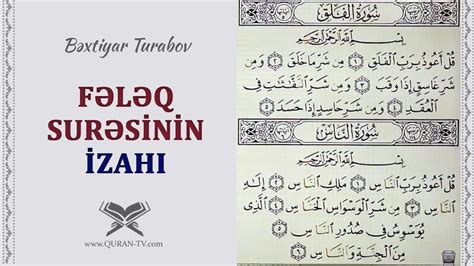 Bəxtiyar Turabov
FƏLƏQ
SURƏSİNİN
İZAHI
www.QURAN-TV.com
سُورَةُ الْفَلَقِ
بِسْمِ اللَّهِ الرَّحْمَٰنِ الرَّحِيمِ
قُلْ أَعُوذُ بِرَبِّ الْفَلَقِ ١ مِن شَرِّ مَا خَلَقَ ٢ وَمِن
شَرِّ غَاسِقٍ إِذَا وَقَبَ ٣ وَمِن شَرِّ النَّفَّٰثَٰتِ فِي
الْعُقَدِ ٤ وَمِن شَرِّ حَاسِدٍ إِذَا حَسَدَ ٥
سُورَةُ النَّاسِ
بِسْمِ اللَّهِ الرَّحْمَٰنِ الرَّحِيمِ
قُلْ أَعُوذُ بِرَبِّ النَّاسِ ١ مَلِكِ النَّاسِ ٢ إِلَٰهِ
النَّاسِ ٣ مِن شَرِّ الْوَسْوَاسِ الْخَنَّاسِ ٤ الَّذِي
يُوَسْوِسُ فِي صُدُورِ النَّاسِ ٥
مِنَ الْجِنَّةِ وَالنَّاسِ ٦